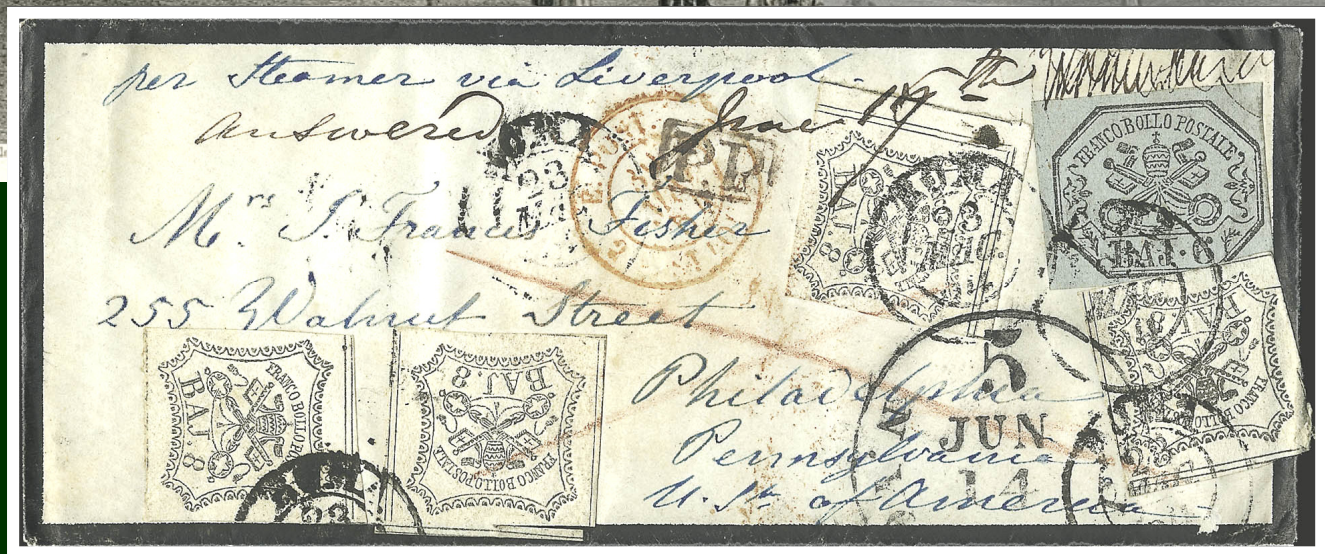 per Steamer via Liverpool.
Answered June 17th
P.D.
23
Mrs. J. Francis Fisher
255 Walnut Street
Philadelphia
Pennsylvania
U. Sts. of America
FRANCO BOLLO POSTALE
BAJ. 6
BAJ. 8
FRANCO BOLLO POSTALE
BAJ. 8
FRANCO BOLLO POSTALE
BAJ. 8
FRANCO BOLLO POSTALE
BAJ. 8
23
5
JUN
14
23